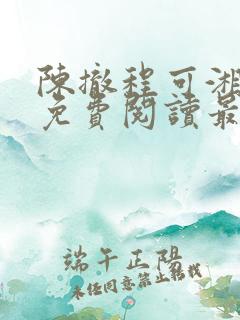 陳撤程可湘
免費閱讀最
端午正陽
未经同意禁止转载